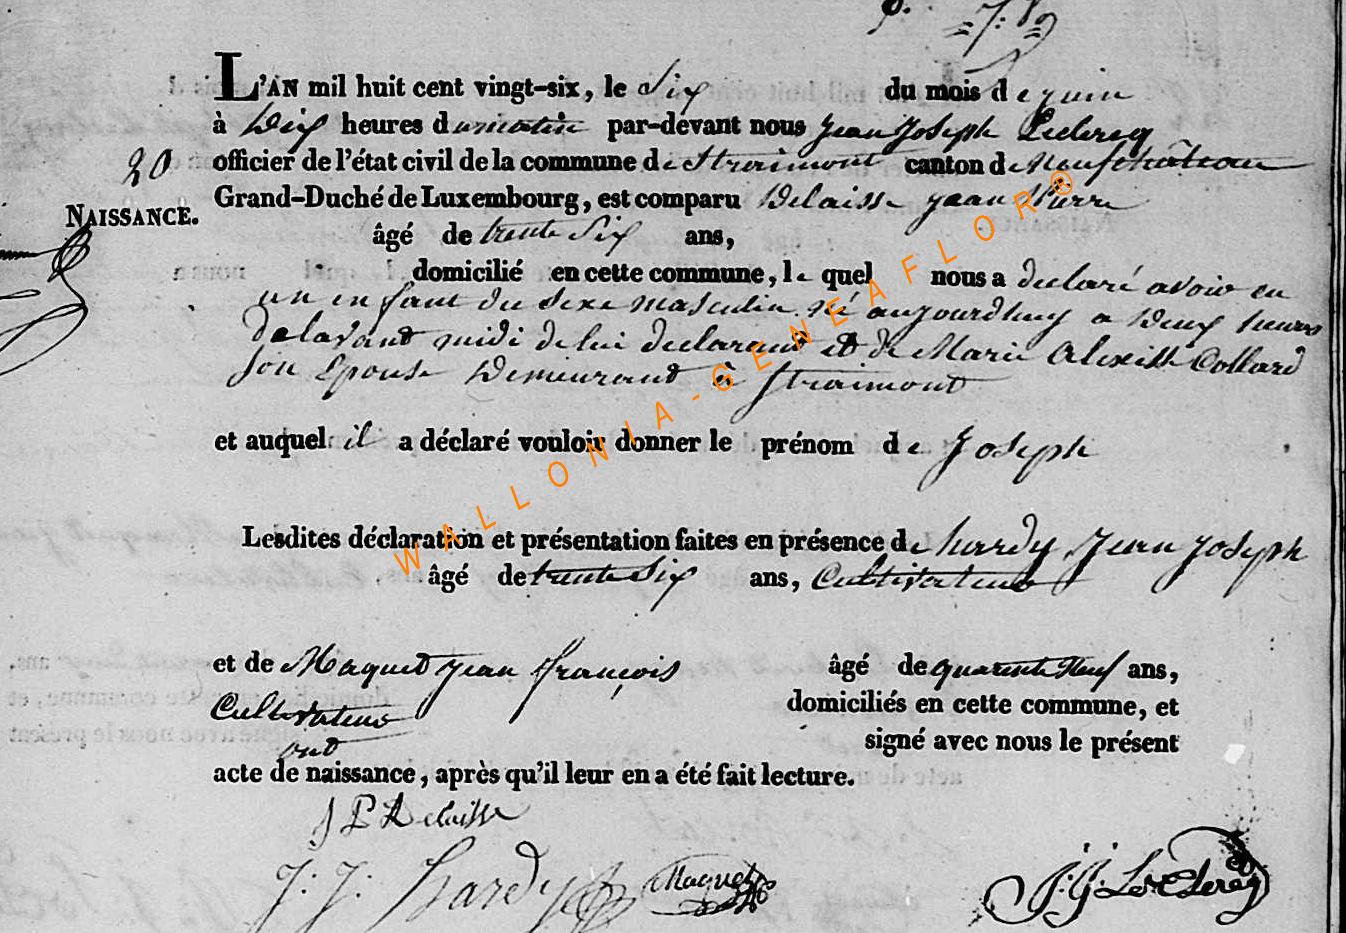 7. 8.
L'AN mil huit cent vingt-six, le Six du mois de juin
à dix heures du matin par-devant nous Jean Joseph Leclercq
officier de l'état civil de la commune de Straimont canton de Neufchâteau
20
Grand-Duché de Luxembourg, est comparu Delaisse jean Pierre
NAISSANCE.
âgé de trente Six ans,
domicilié en cette commune, le quel nous a declaré avoir eu
un enfant du sexe masculin né aujourdhuy a deux heures
delavant midi de lui declarant et de Marie Alexisse Collard
son Epouse demeurand à Straimont
et auquel il a déclaré vouloir donner le prénom de Joseph
Lesdites déclaration et présentation faites en présence de hardy Jean Joseph
âgé de trente Six ans, Cultivateur
et de Maquet jean françois âgé de quarente neuf ans,
Cultivateur domiciliés en cette commune, et
ont signé avec nous le présent
acte de naissance, après qu'il leur en a été fait lecture.
J P Delaisse
J: J: Hardy Maquet J: J: Leclercq
WALLONIA-GENEAFLOR®